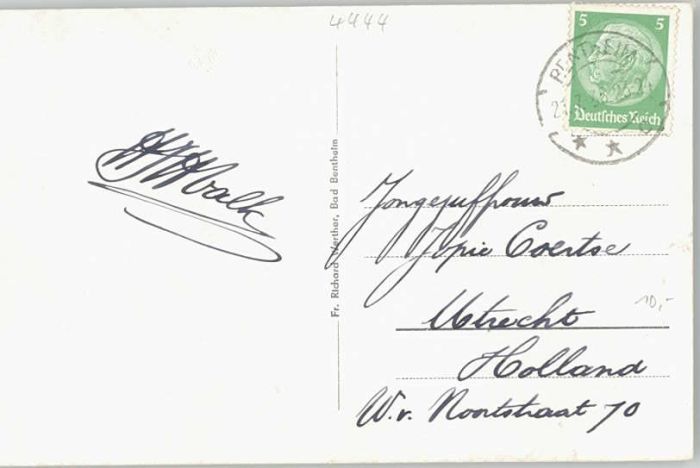 4444
5 5
Deutsches Reich
BENTHEIM
Fr. Richard Werther, Bad Bentheim
Jongejuffrouw
Jopie Coertse
Utrecht
Holland
W.v. Noortstraat 70
10,-